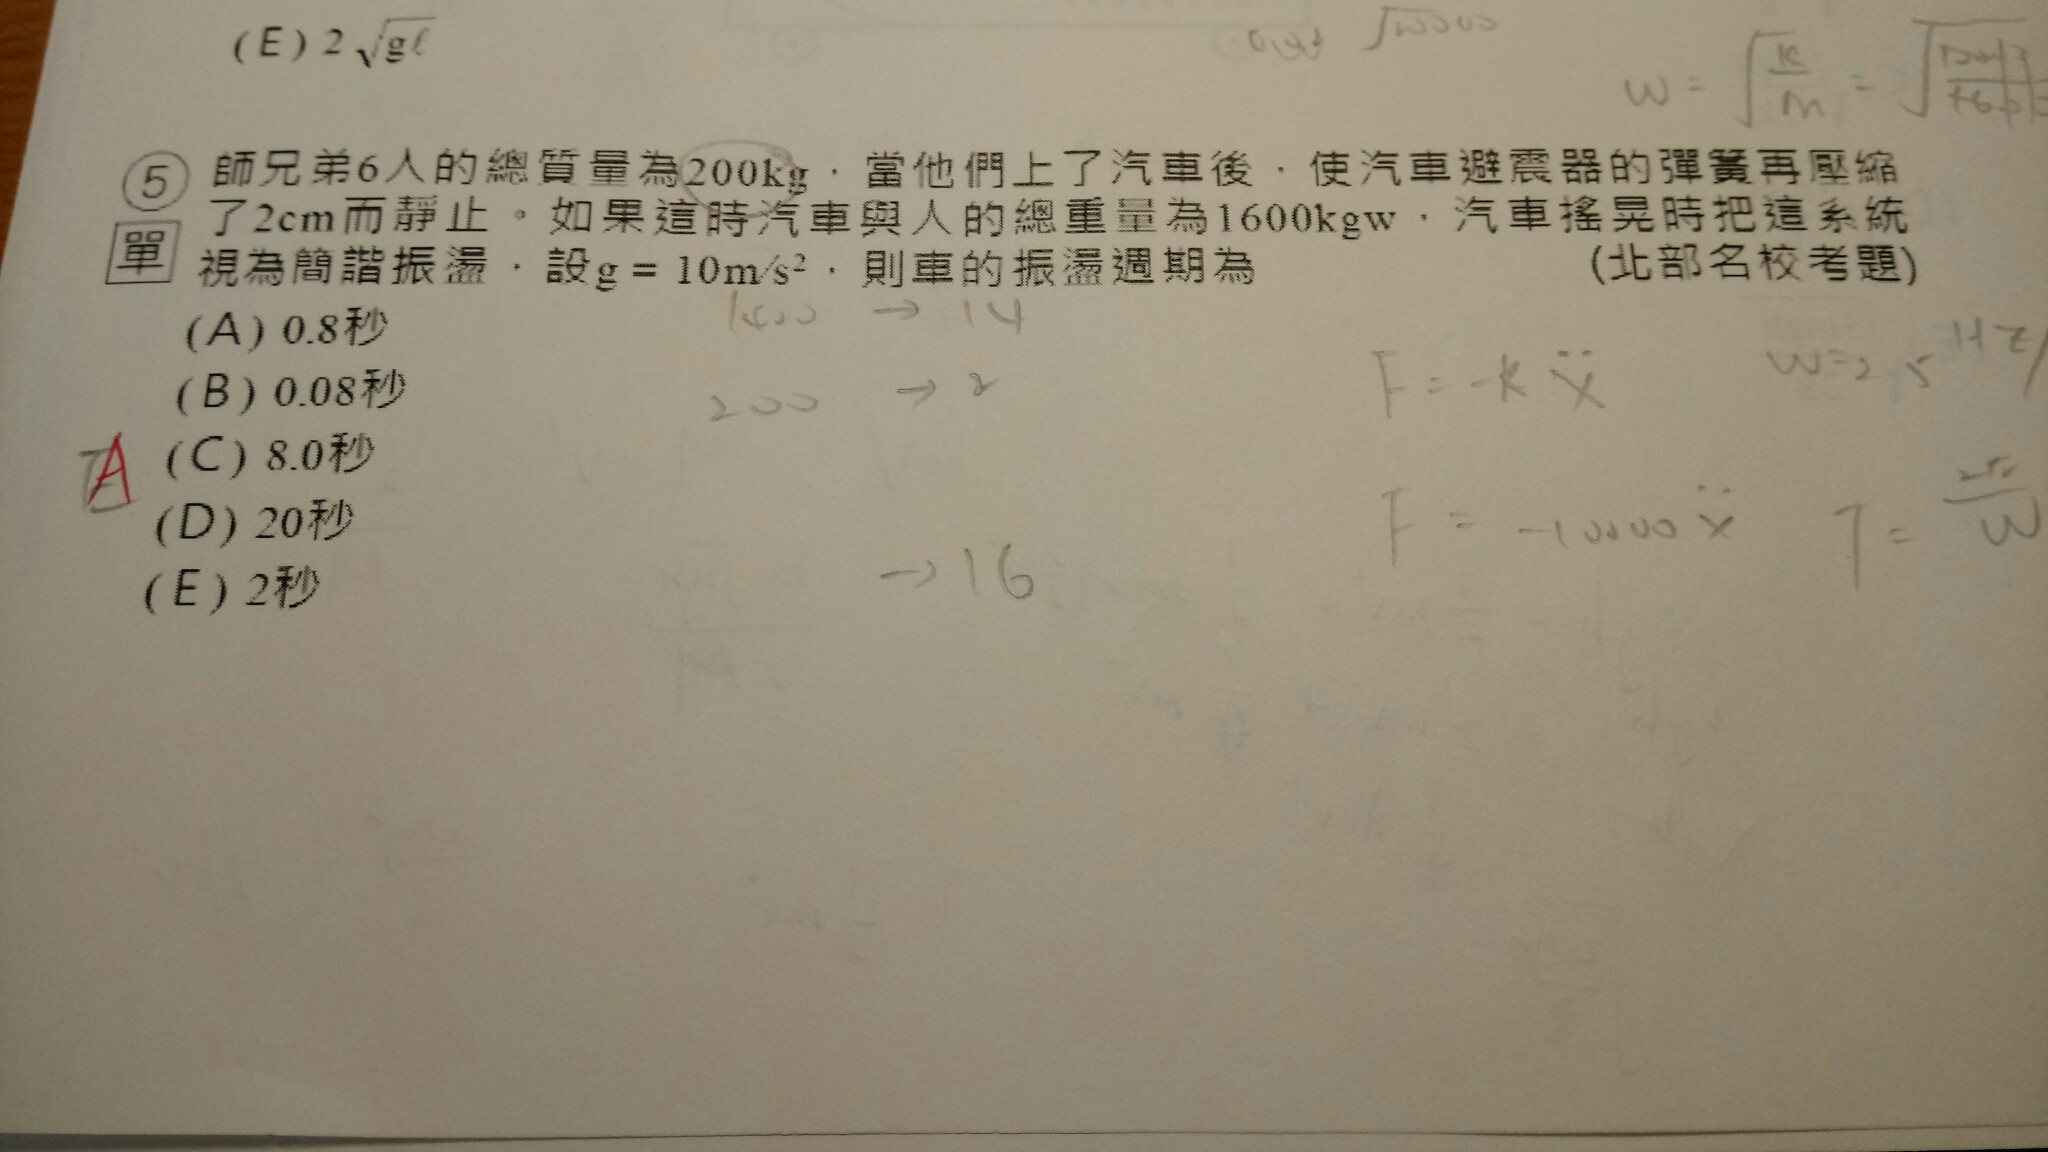 (E) 2√gℓ
√10000
ω = √k/m =
⑤ 師兄弟6人的總質量為200kg，當他們上了汽車後，使汽車避震器的彈簧再壓縮
單 了2cm而靜止。如果這時汽車與人的總重量為1600kgw，汽車搖晃時把這系統
視為簡諧振盪，設g = 10m/s²，則車的振盪週期為 (北部名校考題)
1400 → 14
(A) 0.8秒
F = -k ẍ
ω=2.5 Hz
(B) 0.08秒
200 → 2
A (C) 8.0秒
(D) 20秒
F = -10000 ẍ
T = 2π/ω
(E) 2秒
→ 16